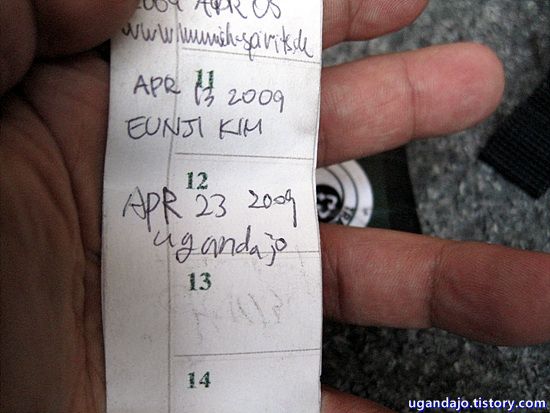 2009 APR 05
www.munich-spirits.de
11
APR 13 2009
EUNJI KIM
12
APR 23 2009
ugandajo
13
14
ugandajo.tistory.com